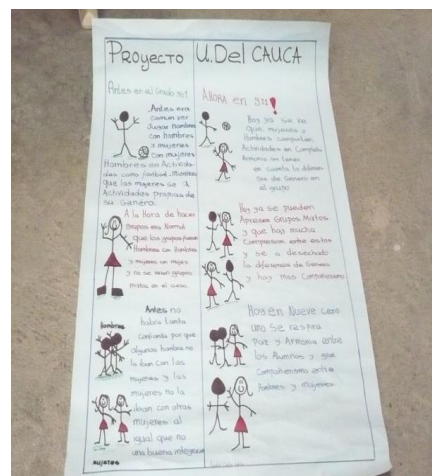 Proyecto U. Del CAUCA
Antes en el Grado 901
Antes era
comun ver
Jugar Hombres
con hombres
y mujeres
con mujeres
Hombres en Activida-
des como football, mientras
que las mujeres se a
Actividades propias de
su Genero.
A la Hora de hacer
grupos era Normal
que los grupos fueran
Hombres con Hombres
y mujeres con mujeres
y no se veian grupos
mixtos en el curso.
Antes no
habia tanta
Confianza por que
algunos hombres no
la iban con las
mujeres y las
mujeres no la
iban con otras
mujeres al
igual que no
una buena integracion
hombres
mujeres
AHORA en 911!
Hoy ya se ve
que mujeres y
Hombres comparten
Actividades en Completa
Armonia sin tener
en cuenta la diferen-
cia de Genero en
el grupo
Hoy ya se pueden
Apreciar Grupos Mixtos
y que hay mucha
Comprension entre estos
y se a desechado
la diferencia de Genero
y hay mas Compañerismo
Hoy en Nueve cero
uno se respira
Paz y Armonia entre
los Alumnos y gran
Compañerismo entre
hombres y mujeres